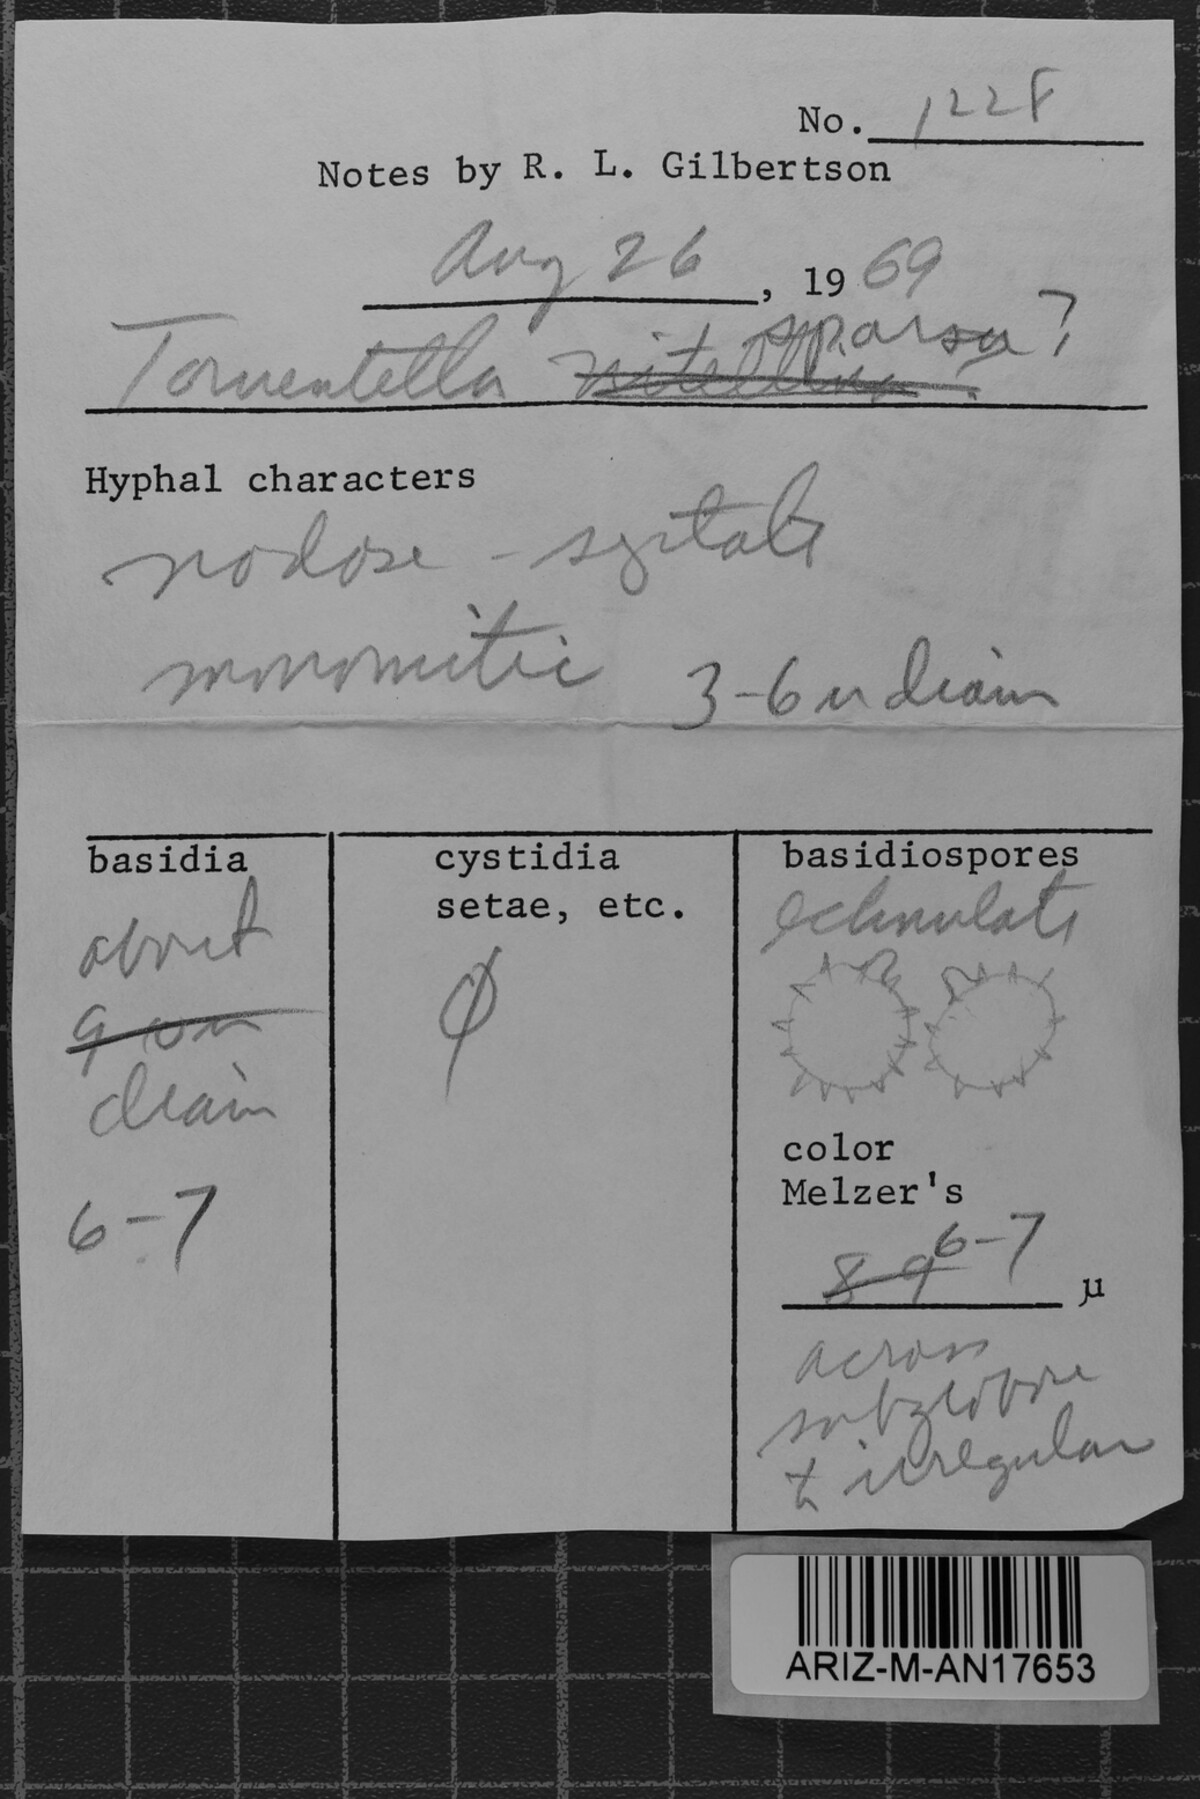 No. 1228
Notes by R. L. Gilbertson
Aug 26, 1969
sparsa ?
Tomentella nitellina ?
Hyphal characters
nodose - septate
monomitic 3-6 u diam
basidia
about
diam
6-7
cystidia
setae, etc.
Ø
basidiospores
echinulate
color
Melzer's
6-7
8-9 µ
across
subglobose
± irregular
ARIZ-M-AN17653